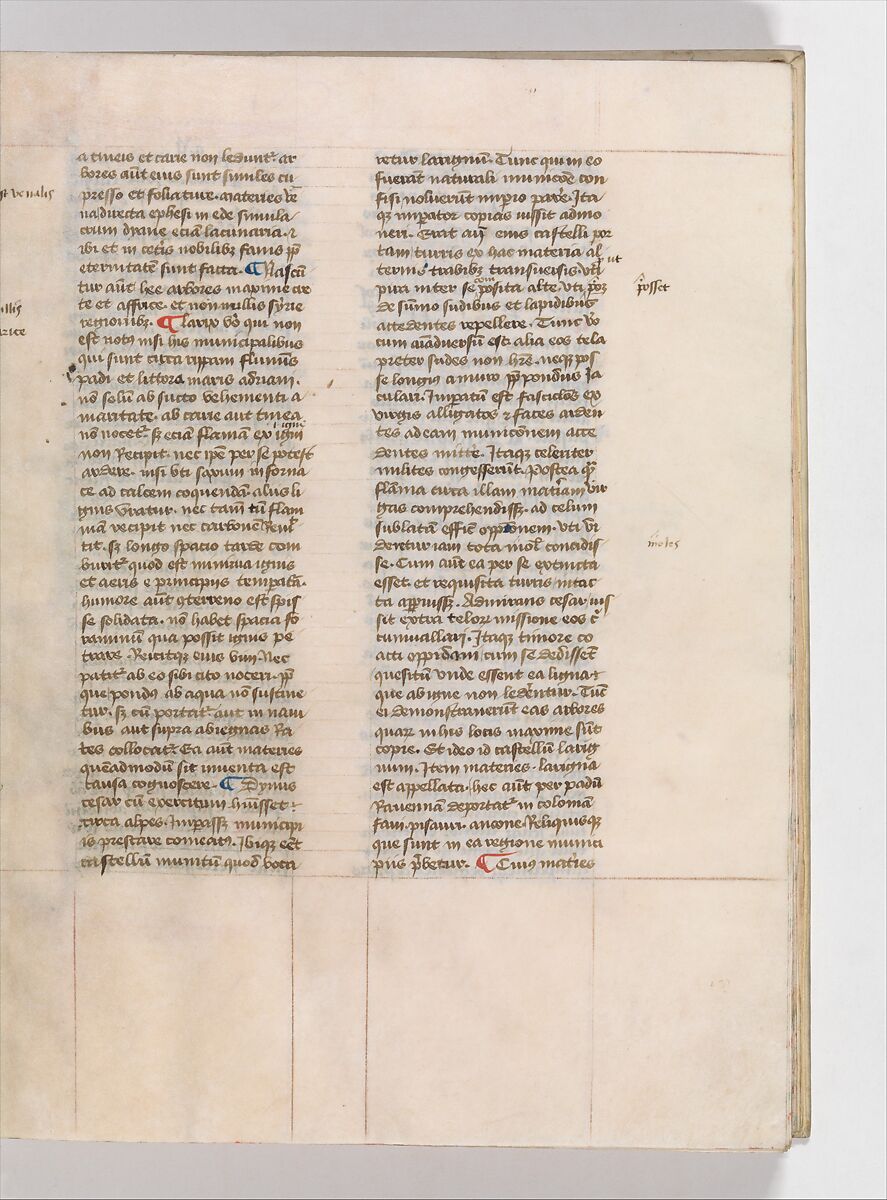 a tineis et carie non ledunt᷑. ar
bores aut̄ eius sunt similes cu
presso et foliature. materies vē
na directa ephesi in ede simula
crum dyane eciā lacunaria. ⁊
ibi et in cet̓is nobilib⁊ fanis ꝓp̄
eternitatē sunt facta. ¶ Nascū
tur aūt hee arbores maxime cre
te et affrice. et non nullis syrie
regionib⁊. ¶ larix v̊o qui non
est not⁹ nisi his municipalibus
qui sunt circa rippam flumīs
padi et littora maris adriani.
nō solū ab succo vehementi a
maritate. ab carie aut tinea
nō nocet᷑. s⁊ eciā flamā ex igni
non Recipit. nec ip̄e per se potest
ardere. nisi vti saxum in forna
ce ad calcem coquendā. aliis li
gnis vratur. nec tam̄ tū̄ flam
mā recipit nec carbonē Remit
tit. s⁊ longo spacio tarde com
burit᷑ quod est minima ignis
et aeris e principiis temperatā.
humore aūt ꝯterreno est spis
se solidata. nō habet spacia fo
raminū qua possit ignis pe
trare. Reicitq⁊ eius vim. Nec
patit᷑ ab eo sibi cito noceri. ꝓp̄
que pond⁹ ab aqua nō sustine
tur. s⁊ cū portat᷑ aut in naui
bus aut supra abiegnas Ra
tes collocat᷑. Ea aūt materies
quēadmodū sit inuenta est
causa cognoscere. ¶ Dyuus
cesar cū exercitum hūisset
circa alpes. Imp̄ass⁊ municipi
is prestare comeat⁹. Ibiq⁊ eēt
castellū munitū quod voca
retur larignū. Tunc qui in eo
fuerāt naturali municōe con
fisi noluerūt imp̄io par̄e. Ita
q⁊ imp̄ator copias iussit admo
neri. Erat aūt eius castelli por
tam turris ex hac materia al
ternis trabib⁊ transuersis vt̄
pira inter se posita alte. vti
de sūmo sudibus et lapidibus
accedentes repellere. Tunc v̊o
cum aīaduersū est. alia eos tela
preter sudes non hr̄e. neq⁊ pos
se longi⁹ a muro ꝓp̄ pondus ia
culari. Imp̄atū est fascicl̓os ex
virgis alligatos ⁊ faces arden
tes ad eam municōnem acce
dentes mitt̄e. Itaq⁊ celeriter
milites congesserūt. Postea q̄
flāma circa illam mat̄iam vir
gas comprehendiss⁊. ad celum
sublatā effic̄ opp̄onem. vti vi
deretur iam tota mol̓ concidis
se. Cum aūt ea per se extincta
esset. et requisita turris intac
ta apparuiss⁊. Admirans cesar ius
sit extra telor̄ missione eos c̄
cumuallari. Itaq⁊ timore co
acti oppidani cum se dedissēt
quesitū vnde essent ea ligna
que ab igne non led̄entur. Tūc
ei demonstrauerūt eas arbores
quar̄ in his locis maxime sūt
copie. Et ideo id castellū larig
num. Item materies. larigna
est appellata. hec aūt per padū
Rauennā deportat᷑ in coloniā
fani. pisauri. ancone. Reliquisq⁊
que sunt in ea regione munici
piis p̄betur. ¶ Cuius mat̄ies
igne
com
ut
p̄osset
moles
st venalis